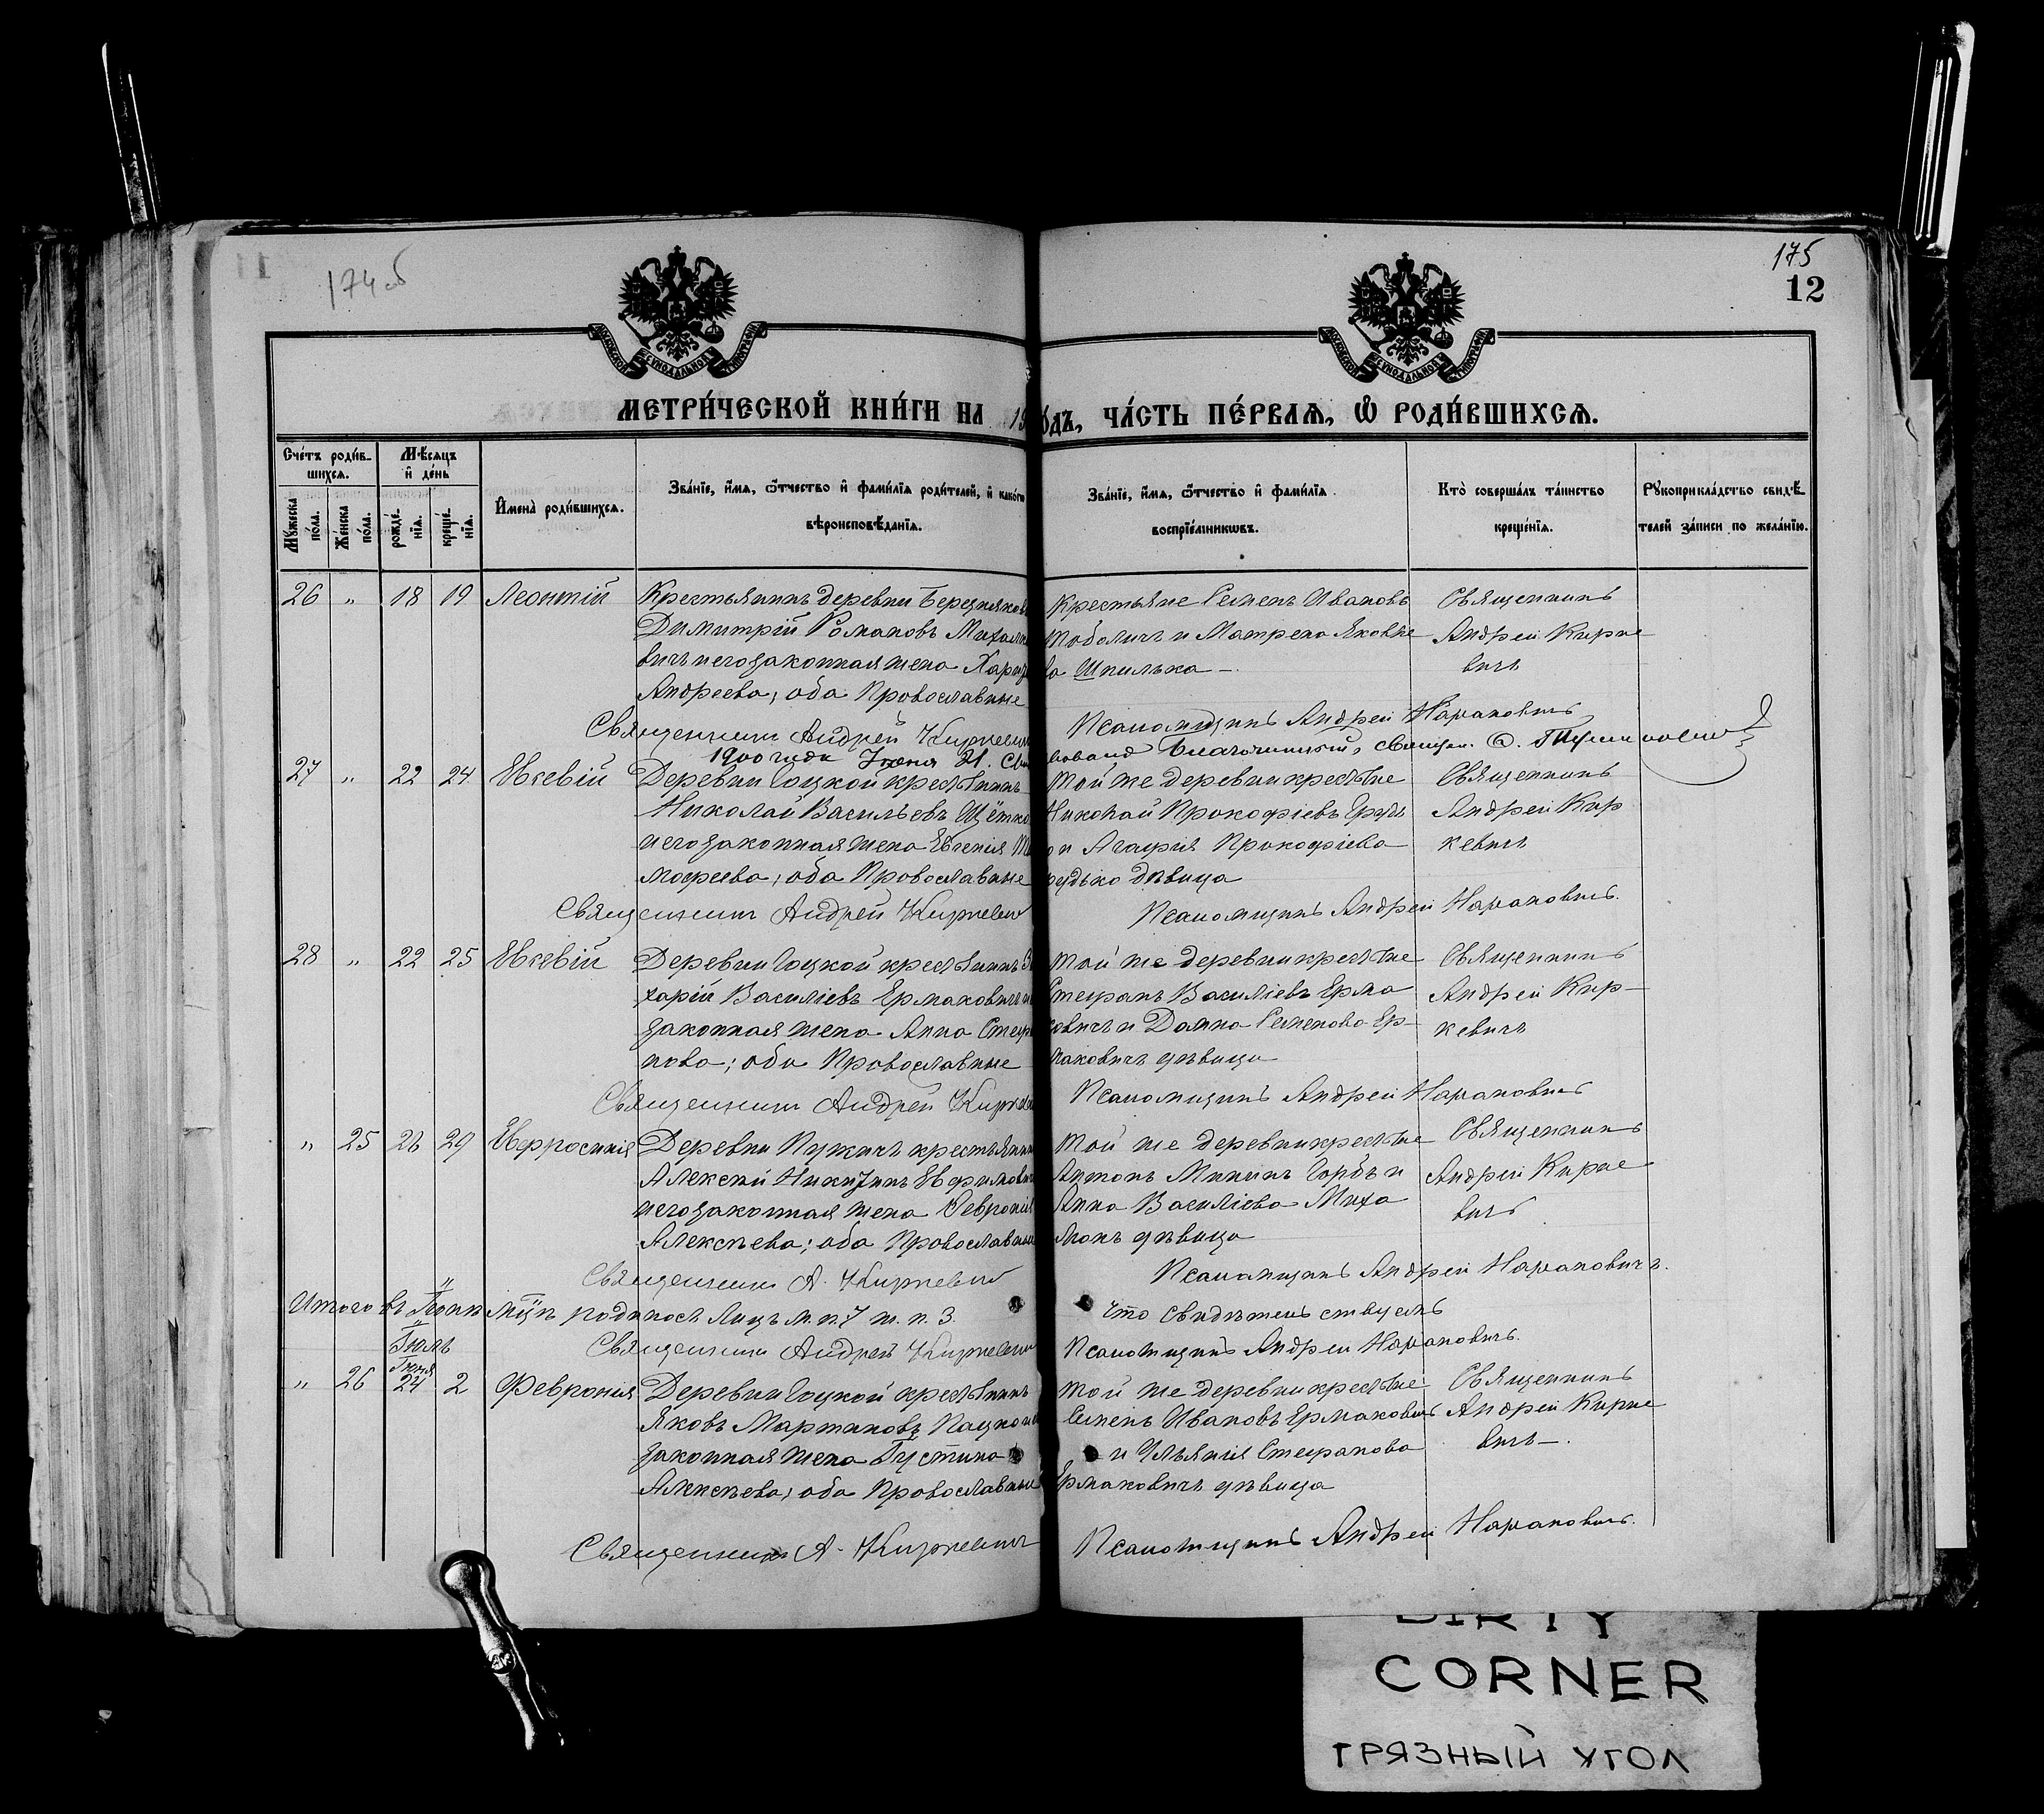 174об
175
12
МЕТРИ́ЧЕСКОЙ КНИ́ГИ НА 19
О́ДЪ, ЧА́СТЬ ПЕ́РВАѦ, Ѡ҆ РОДИ́ВШИХСѦ.
Сче́тъ роди́в-
шихсѧ.
Мѣ́сѧцъ
и҆ де́нь
Мꙋ́жеска
по́ла.
Же́нска
по́ла.
рожде́-
нїѧ.
креще́-
нїѧ.
И҆мена̀ роди́вшихсѧ.
Зва́нїе, и҆́мѧ, ѻ҆́тчество и҆ фами́лїѧ роди́телей, и҆ како́гѡ
вѣроисповѣ́данїѧ.
Зва́нїе, и҆́мѧ, ѻ҆́тчество и҆ фами́лїѧ
воспрїе́мникѡвъ.
Кто̀ соверша́лъ та́инство
креще́нїѧ.
Рꙋкоприкла́дство свидѣ́-
телей за́писи по жела́нїю.
26 „ 18 19 Леонтій Крестьянинъ деревни
Димитрій Романовъ
вичъ и его законная жена
Андреева; оба Православные
Крестьяне Семенъ Ивановъ
и Матрена Яковле
ва Шпилька —.
Священникъ
Андрей Кирке
вичъ
Священникъ Андрей Киркевич
Псаломщикъ Андрей
1900 года Іюня 21.
Благочинный, священ.
27 „ 22 24 Евсевій Деревни Гоцкой крестьянинъ
Николай Васильевъ
и его законная жена Евгенія Ти
мофеева; оба Православные
Той же деревни крестьяне
Николай Прокофіевъ
о и Агафія Прокофіева
редько дѣвица
Священникъ
Андрей Кир
кевичъ
Священникъ Андрей Киркевич
Псаломщикъ Андрей
28 „ 22 25 Евсевій Деревни Гоцкой крестьянинъ За
харій Василіевъ Ермаковичъ и
законная жена Анна Стефа
нова; оба Православные
Той же деревни крестьяне
Стефанъ Василіевъ Ерма
ковичъ и Домна Семенова Ер-
маковичъ дѣвица
Священникъ
Андрей Кир-
кевичъ
Священникъ Андрей Киркевич
Псаломщикъ Андрей
„ 25 26 29 Евфросинія Деревни Пужичъ крестьянинъ
Алексѣй Никитинъ
и его законная жена Февронія
Алексѣева; оба Православные
Той же деревни крестьяне
Антонъ Мининъ Горбъ и
Анна Василіева Миха
люкъ дѣвица
Священникъ
Андрей Кирке
вичъ
Священникъ А. Киркевич
Псаломщикъ Андрей
Итого въ Іюнѣ м҃цѣ родилось лицъ м. п. 7 ж. п. 3.
Что свидѣтельствуемъ
Іюль
Священникъ Андрей Киркевич
Псаломщикъ Андрей
Іюня
„ 26 24 2 Феврония Деревни Гоцкой крестьянинъ
Яковъ Мартиновъ
законная жена Іустина
Алексѣева; оба Православные
Той же деревни крестьяне
Семенъ Ивановъ Ермаковичъ
и Ульянія Стефанова
Ермаковичъ дѣвица
Священникъ
Андрей Кирке
вичъ —.
Священникъ А. Киркевич
Псаломщикъ Андрей
DIRTY
CORNER
ГРЯЗНЫЙ УГОЛ